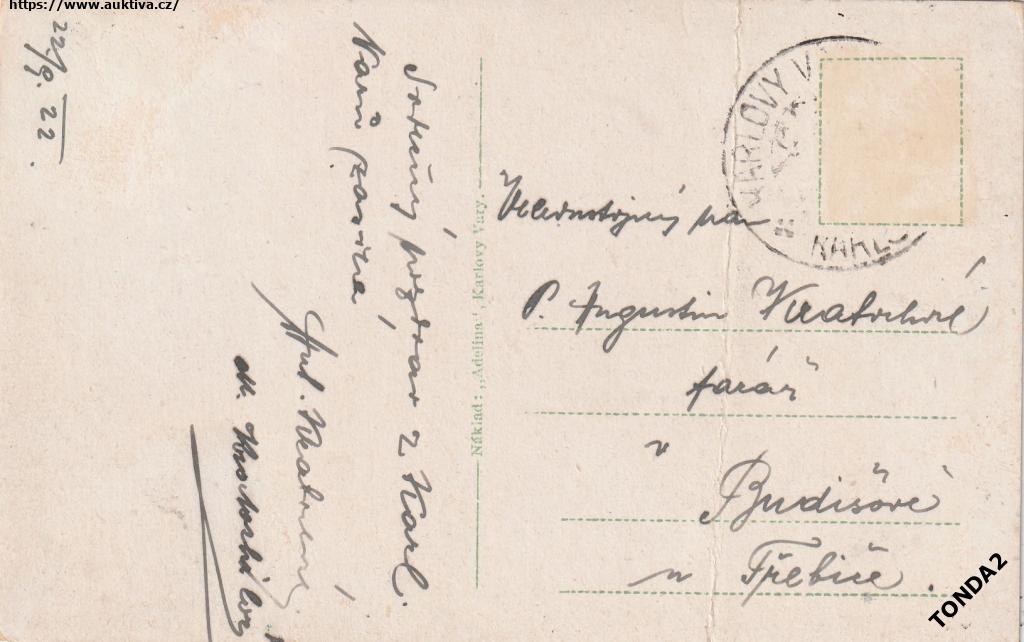 https://www.auktiva.cz/
22/9. 22.
Srdečný pozdrav z Karl.
Varů zasílá
Ant. Kratochvíl
M. Kratochvílová
Náklad: „Adelina“, Karlovy Vary.
KARLOVY V
KARLO
Velectihodný pan
P. Augustin Kratochvíl
farář
v
Budišově
u Třebíče.
TONDA2